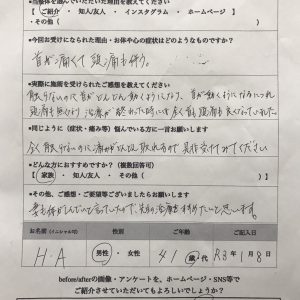 ●当整体を選んでいただいた理由を教えてください
【 ご紹介 ・ 知人/友人 ・ インスタグラム ・ ホームページ 】
・その他(
●今回お受けになられた理由・お体や心の症状はどのようなものですか?
首が痛くて 頭痛も伴う。
●実際に施術を受けられたご感想を教えてください
触らないのに 首がどんどん動くようになり、首が動くようになるにつれ
頭痛も無くなり 治療が終わった時には 全く首も頭痛も良くなっていました。
●同じように(症状・痛み等)悩んでいる方に一言お願いします
全く触らないのに痛みが 取れるので 是非受けてみてください
●どんな方におすすめですか?(複数回答可)
【 家族 ・ 知人/友人 ・ その他( )】
●その他、ご感想・ご要望等ございましたらお願いします
妻も体がしんどいと言っていたので、
お名前(イニシャル可) 性別 ご年齢 ご記入日
H・A 男性 ・ 女性 41 歳代 R3年1月8日
before/afterの画像・アンケートを、ホームページ・SNS等で
ご紹介させていただいてもよろしいでしょうか?